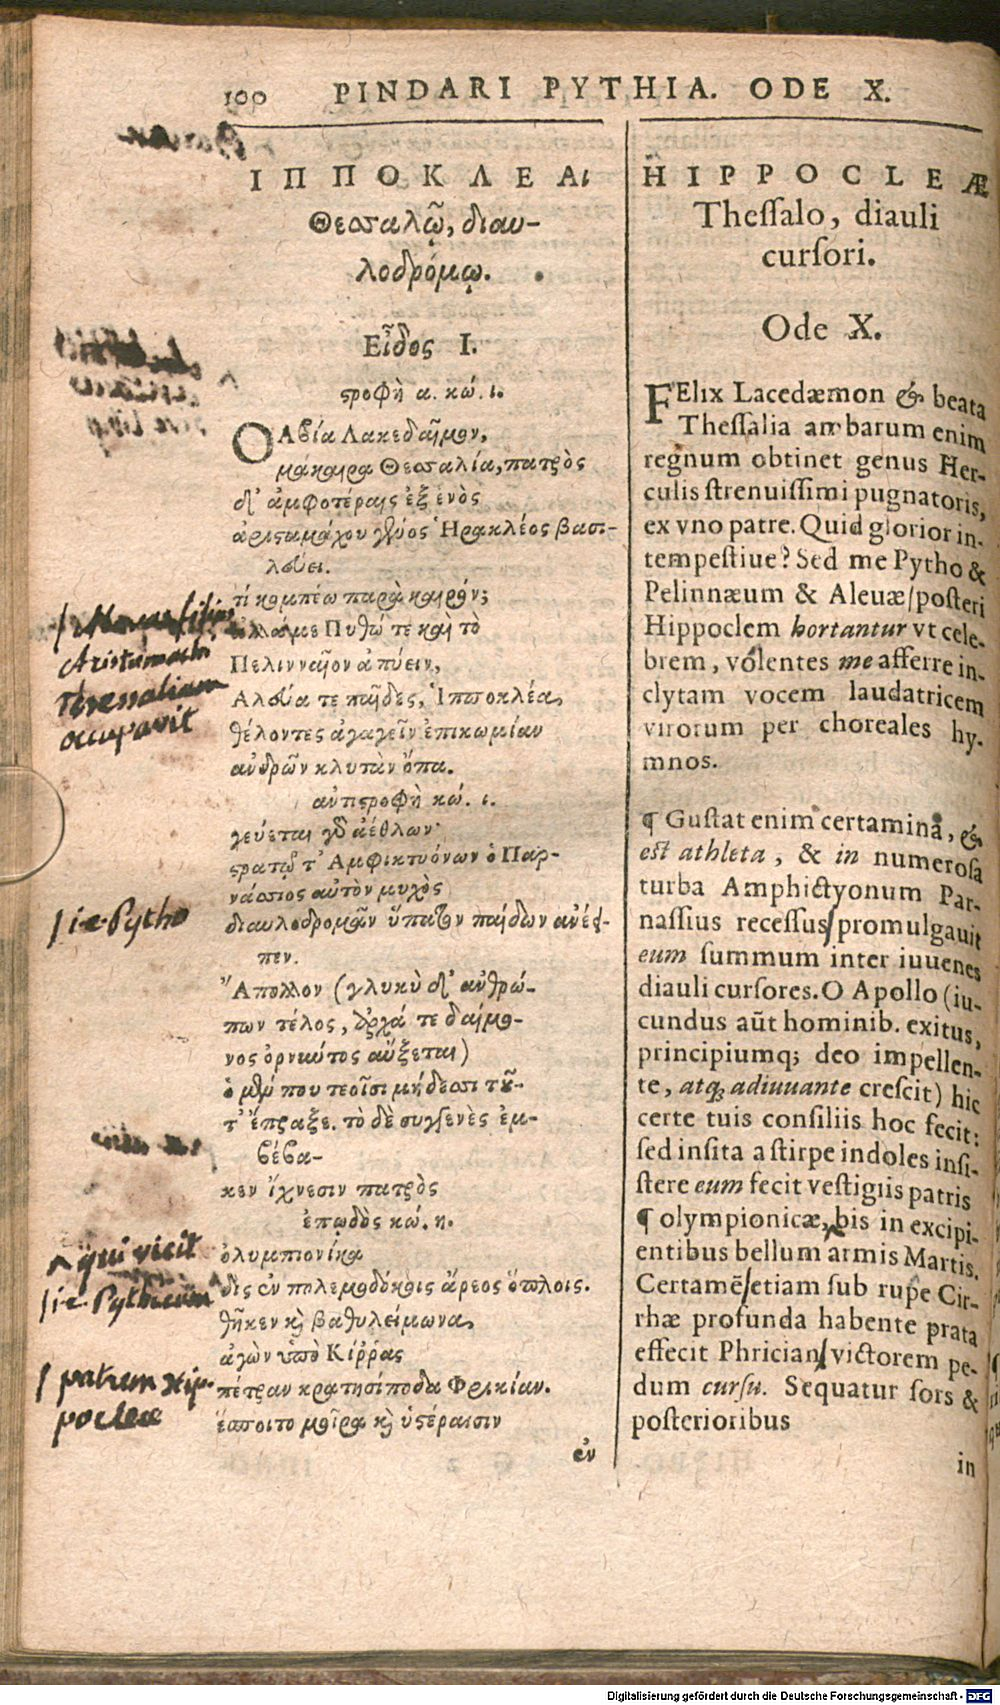 100 PINDARI PYTHIA. ODE X.
ΙΠΠΟΚΛΕΑι
Θεσσαλῷ, διαυ-
λοδρόμῳ.
Εἶδος Ι.
στροφὴ α. κώ. ι.
ΟΛβία Λακεδαῖμον,
μάκαιρα Θεσσαλία, πατρὸς
δ' ἀμφοτέραις ἐξ ἑνὸς
ἀριστομάχου γένος Ἡρακλέος βασι-
λεύει.
τί κομπέω παρὰ καιρόν;
ἀλλά με Πυθώ τε καὶ τὸ
Πελινναῖον ἀπύειν,
Ἀλεύα τε παῖδες, Ἱπποκλέα,
θέλοντες ἀγαγεῖν ἐπικωμίαν
ἀνδρῶν κλυτὰν ὄπα.
ἀντιστροφὴ κώ. ι.
γεύεται γὸ ἀέθλων·
στρατῷ τ' Ἀμφικτυόνων ὁ Παρ-
νάσσιος αὐτὸν μυχὸς
διαυλοδρομᾶν ὕπατον παίδων ἀνέει-
πεν.
Ἄπολλον (γλυκὺ δ' ἀνθρώ-
πων τέλος, ἀρχά τε δαίμο-
νος ὀρνύντος αὔξεται)
ὁ μέν που τεοῖσι μήδεσι τοῦ-
τ' ἔπραξε. τὸ δὲ συγγενὲς ἐμ-
βέβα-
κεν ἴχνεσιν πατρὸς
ἐπῳδὸς κώ. η.
ὀλυμπιονίκα
δὶς ἐν πολεμοδόκοις ἄρεος ὅπλοις.
θῆκεν κὶ βαθυλείμωνα,
ἀγὼν ὑπὸ Κίῤῥας
πέτραν κρατησίποδα Φρικίαν.
ἕσποιτο μοῖρα κὶ ὑστέραισιν
ἐν
HIPPOCLEÆ
Thessalo, diauli
cursori.
Ode X.
FElix Lacedæmon & beata
Thessalia ambarum enim
regnum obtinet genus Her-
culis strenuissimi pugnatoris,
ex vno patre. Quid glorior in-
tempestiue? Sed me Pytho &
Pelinnæum & Aleuæ/posteri
Hippoclem hortantur vt cele-
brem, volentes me afferre in-
clytam vocem laudatricem
virorum per choreales hy-
mnos.
¶ Gustat enim certamina, &
est athleta, & in numerosa
turba Amphictyonum Par-
nassius recessus/promulgauit
eum summum inter iuuenes
diauli cursores. O Apollo (iu-
cundus aũt hominib. exitus,
principiumq; deo impellen-
te, atq; adiuuante crescit) hic
certe tuis consiliis hoc fecit:
sed insita a stirpe indoles insi-
stere eum fecit vestigiis patris
¶ olympionicæ, bis in excipi-
entibus bellum armis Martis.
Certamẽ/etiam sub rupe Cir-
rhæ profunda habente prata
effecit Phrician/victorem pe-
dum cursu. Sequatur sors &
posterioribus
in
Aristomach
Thessaliam
occupavit
/ i.e. Pytho
^ qui vicit
/ i.e. Pythicum
/ patrem Hip-
pocleæ
Digitalisierung gefördert durch die Deutsche Forschungsgemeinschaft - DFG